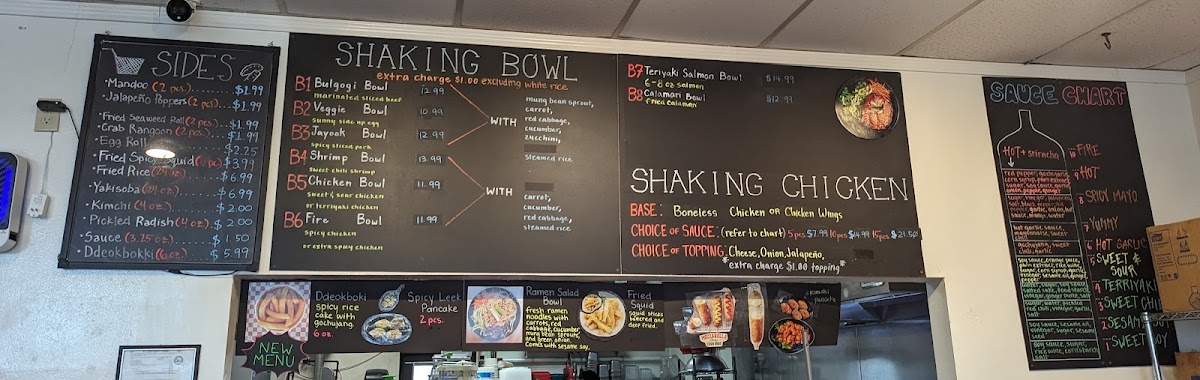 SIDES
Mandoo (2 pcs.) ...... $1.99
Jalapeño Poppers (2 pcs.) ... $1.99
Fried Seaweed Roll (2 pcs.) .. $1.99
Crab Rangoon (2 pcs.) .... $1.99
Egg Roll $2.25
Fried Spicy Squid $3.99
Fried Rice (24 oz.) ...... $6.99
Yakisoba (24 oz.) ...... $6.99
Kimchi (4 oz.) ....... $2.00
Pickled Radish (4 oz.) . $2.00
Sauce (3.25 oz.) ...... $1.50
Ddeokbokki (6 oz.) .... $5.99
SHAKING BOWL
extra charge $1.00 excluding white rice
B1 Bulgogi Bowl 12.99
marinated sliced beef
B2 Veggie Bowl 10.99
sunny side up egg
B3 Jayook Bowl 12.99
spicy sliced pork
B4 Shrimp Bowl 13.99
sweet chili shrimp
B5 Chicken Bowl 11.99
sweet & sour chicken
or terriyaki chicken
B6 Fire Bowl 11.99
spicy chicken
or extra spicy chicken
WITH
mung bean sprout,
carrot,
red cabbage,
cucumber,
zucchini,
steamed rice
WITH
carrot,
cucumber,
red cabbage,
steamed rice
B7 Teriyaki Salmon Bowl $14.99
6-8 oz salmon
B8 Calamari Bowl $12.99
fried calamari
SHAKING CHICKEN
BASE: Boneless Chicken or Chicken Wings
CHOICE OF SAUCE: (refer to chart) 5pcs $7.99 10pcs $14.99 15pcs $21.50
CHOICE OF TOPPING: Cheese, Onion, Jalapeño,
*extra charge $1.00 topping*
SAUCE CHART
HOT + sriracha
10 FIRE
9 HOT
8 SPICY MAYO
7 YUMMY
6 HOT GARLIC
5 SWEET & SOUR
4 TERRIYAKI
3 SWEET CHILI
2 SESAME
1 SWEET SOY
hot garlic sauce,
gochujang, sweet
chili
soy sauce, sesame oil,
vinegar, sugar, sesame
soy sauce, sugar,
rice wine,
sauce, cornstarch
NEW
MENU
Ddeokboki
spicy rice
cake with
gochujang.
6 oz.
Spicy Leek
Pancake
2 pcs.
Ramen Salad
Bowl
fresh ramen
noodles with
carrots, red
cabbage, cucumber,
mung bean sprouts,
and green onion.
Comes with sesame soy.
Fried
Squid
squid sticks
battered and
deep fried.